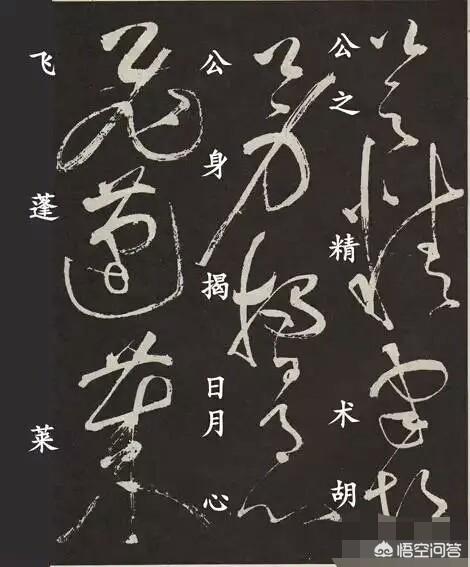 公之精术胡
公身揭日月心
飞蓬莱
悟空问答